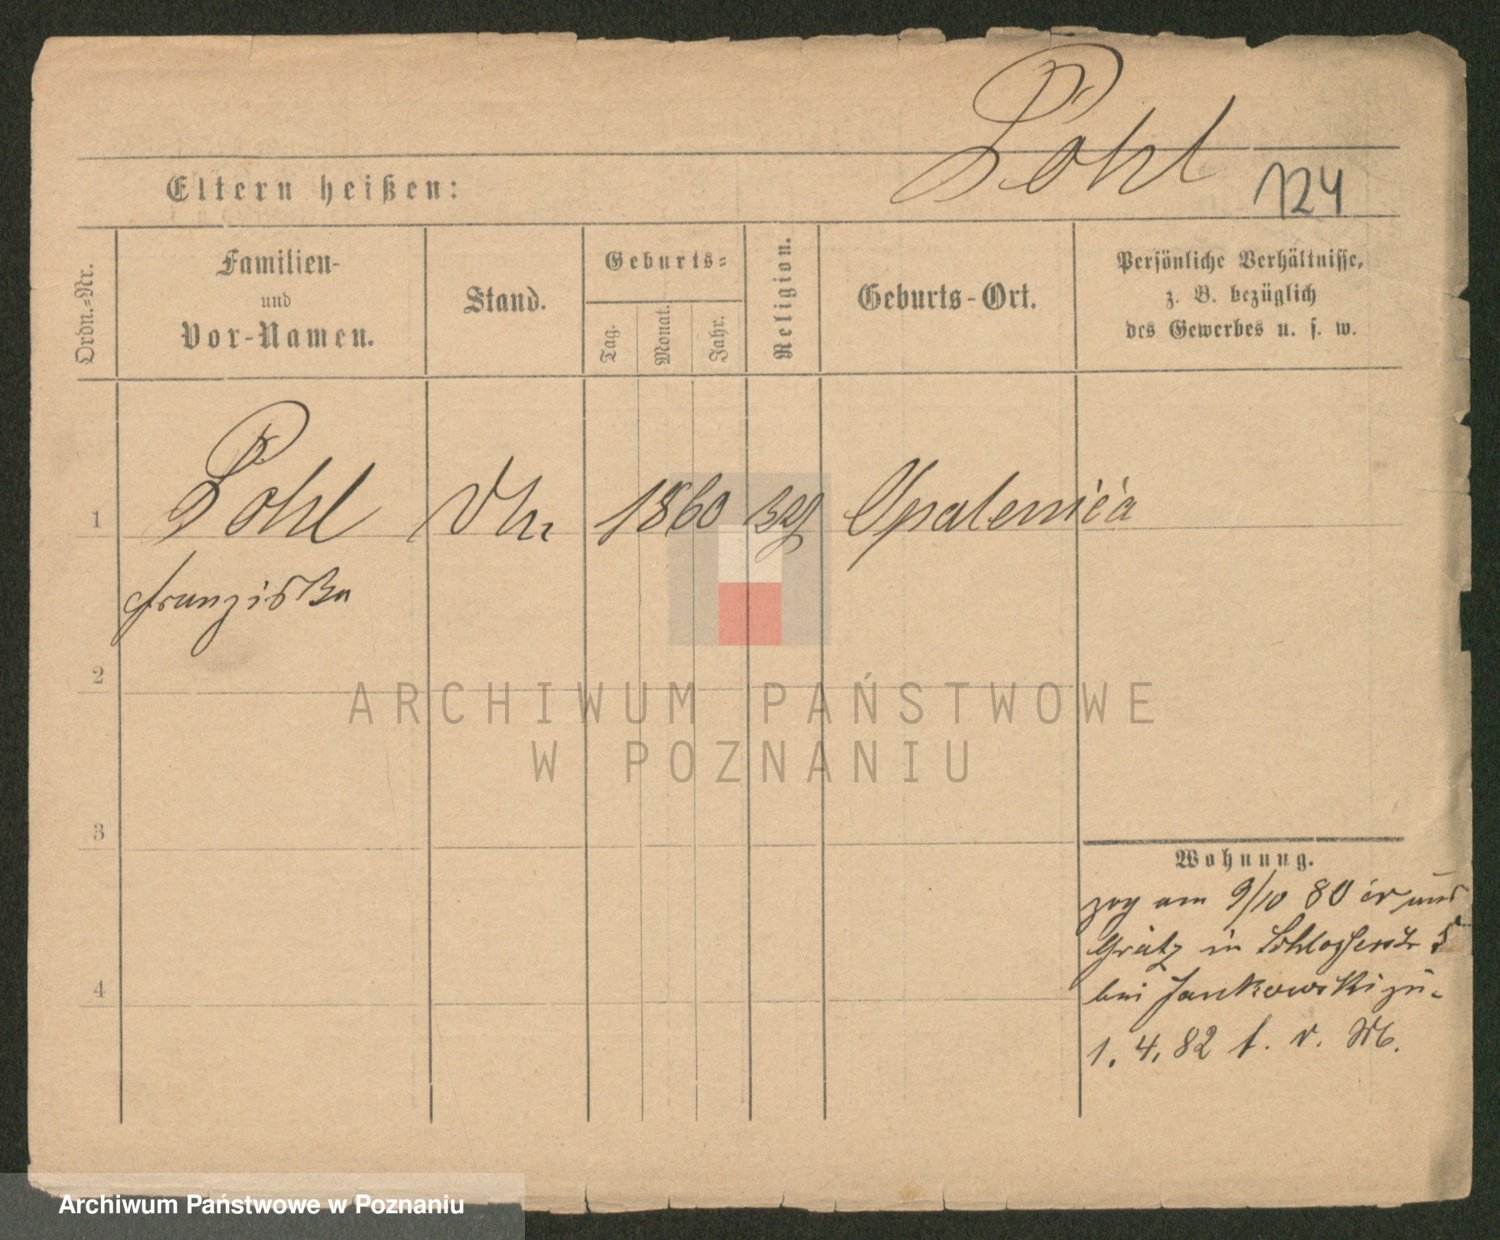 Pohl
124
Eltern heißen:
Ordn.-Nr.
Familien-
und
Vor-Namen.
Stand.
Geburts-
Tag.
Monat.
Jahr.
Religion.
Geburts-Ort.
Persönliche Verhältnisse,
z. B. bezüglich
des Gewerbes u. s. w.
1
Pohl
1860
Opalenica
Franziska
2
ARCHIWUM PAŃSTWOWE
W POZNANIU
3
Wohnung.
zog am 9/10 80
Grätz in Schlosserstr 5
bei Jankowski zu
4
1. 4. 82 f. v. M.
Archiwum Państwowe w Poznaniu